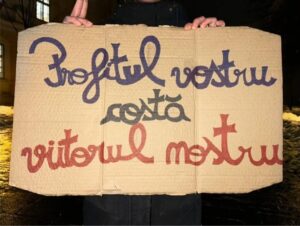 Profitul vostru
costă
viitorul nostru